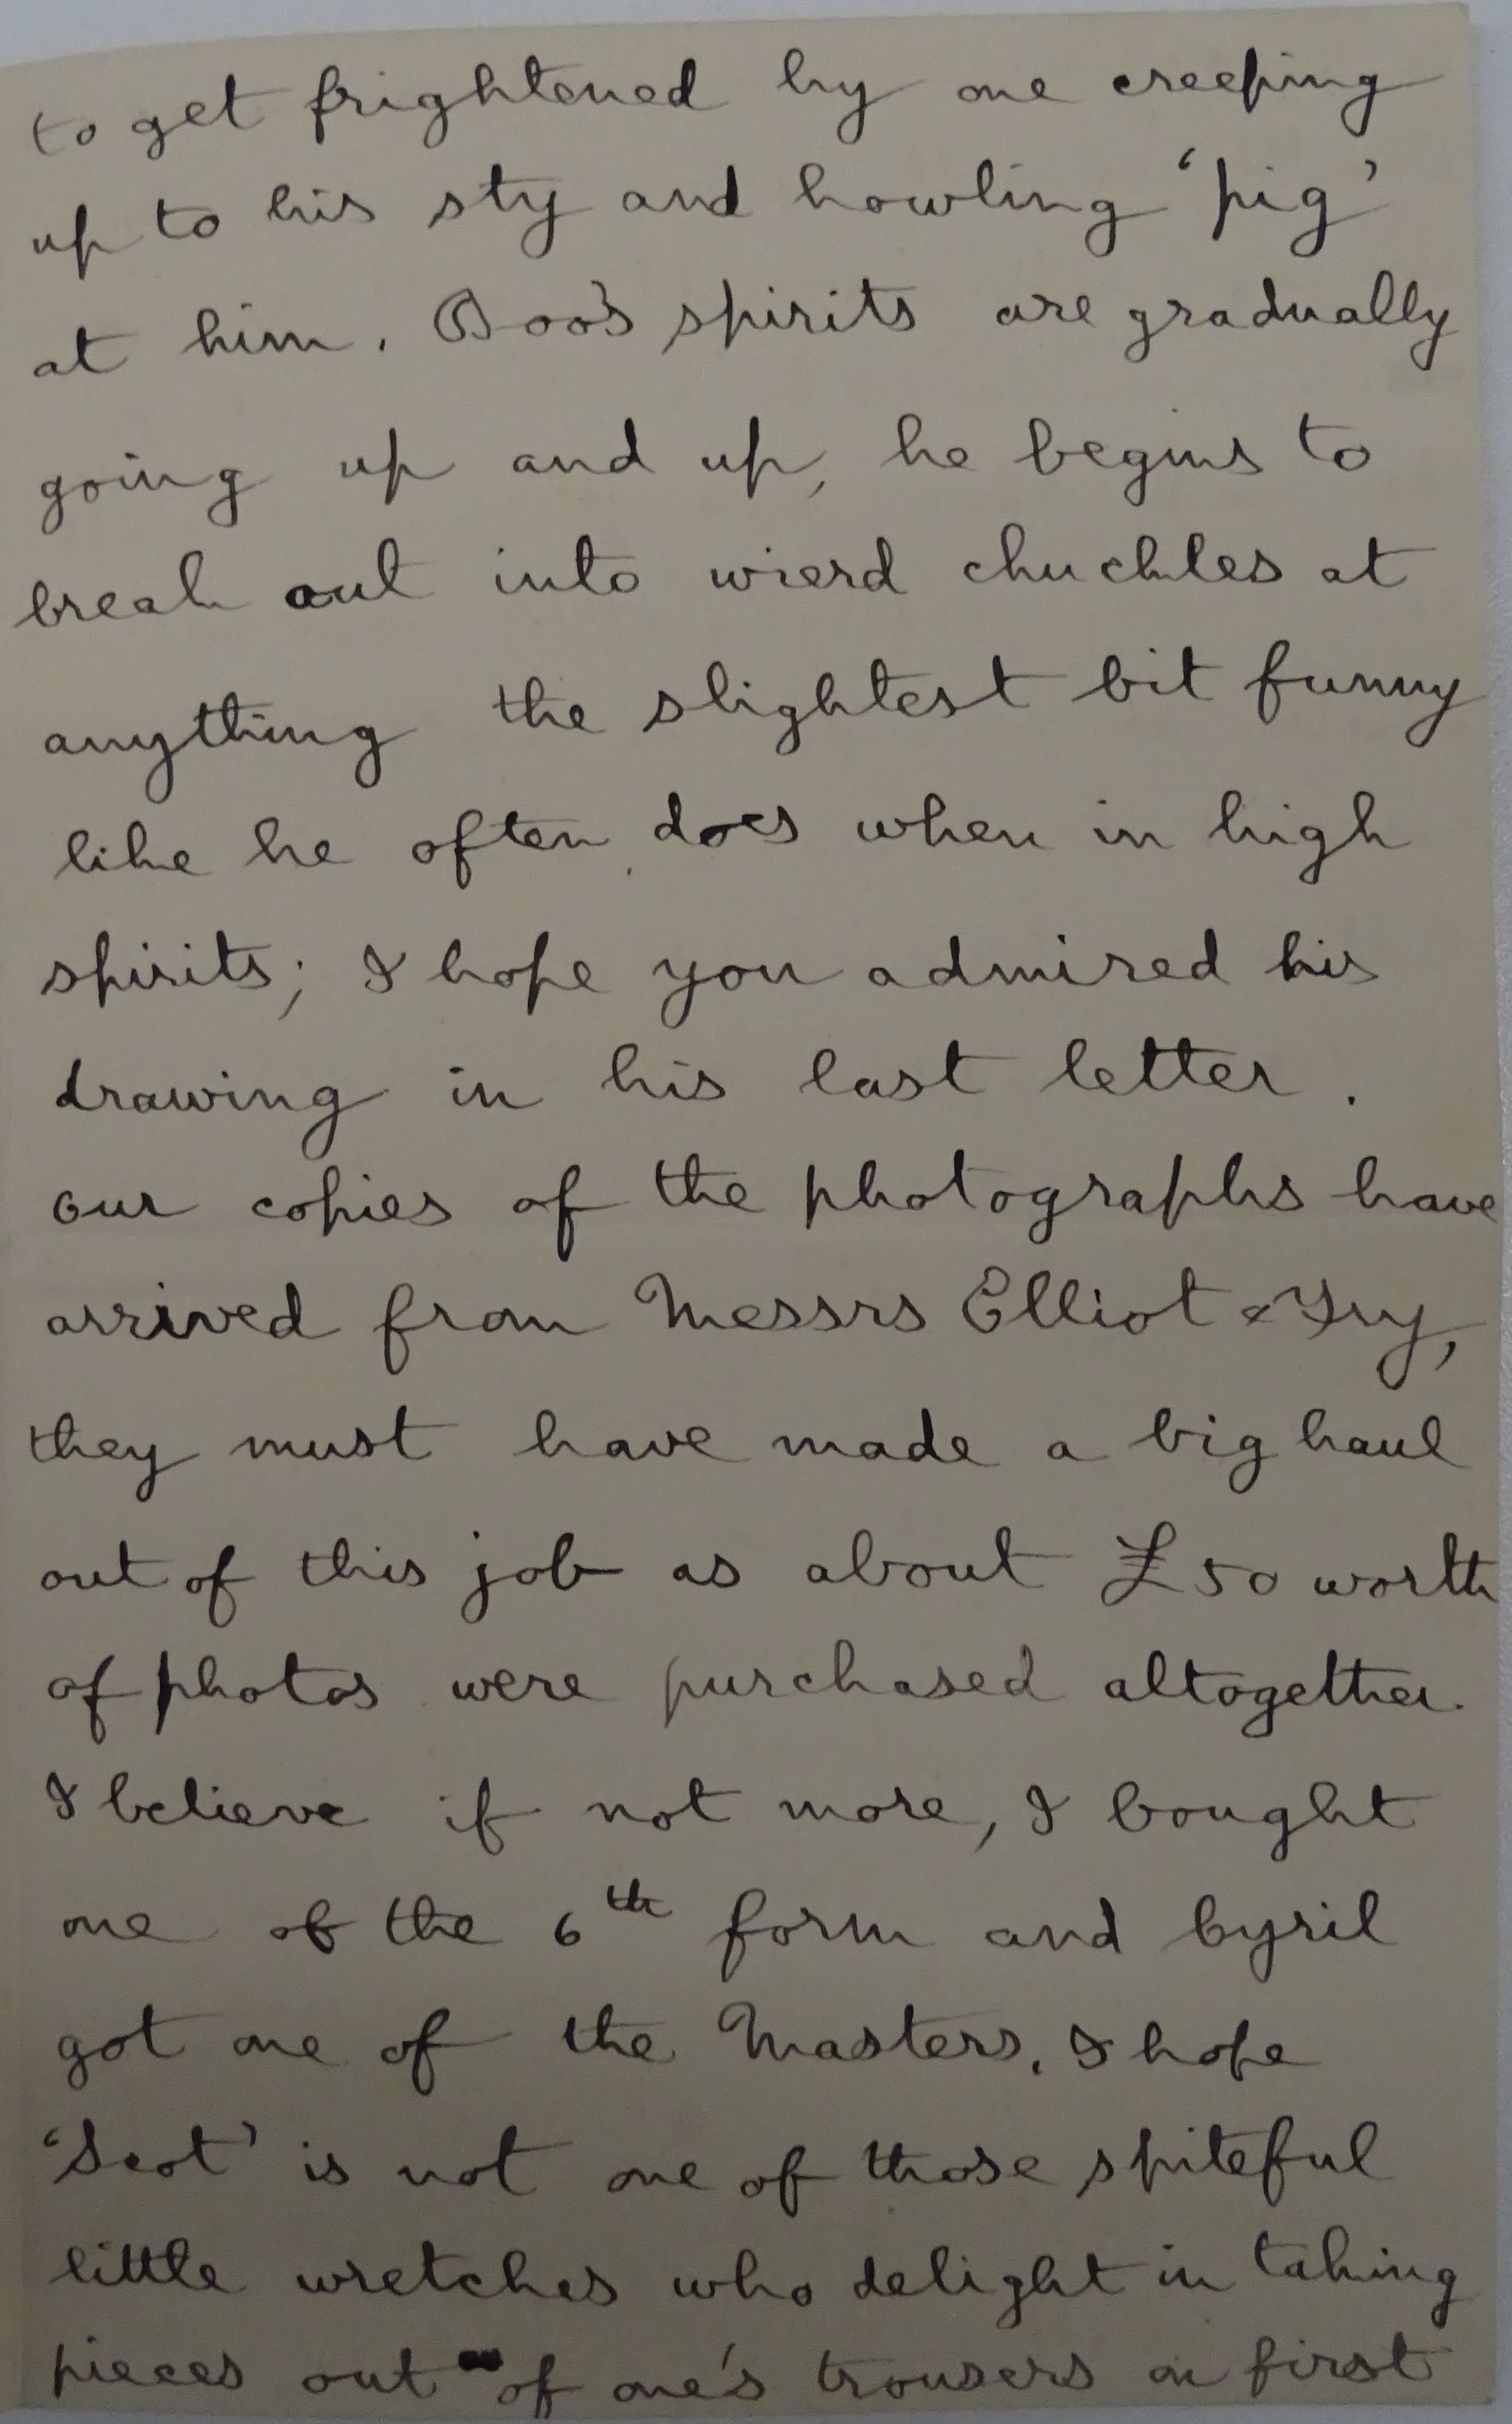 to get frightened by one creeping
up to his sty and howling 'pig'
at him. Boo's spirits are gradually
going up and up, he begins to
break out into wierd chuckles at
anything the slightest bit funny
like he often does when in high
spirits; I hope you admired his
drawing in his last letter.
our copies of the photographs have
arrived from Messrs Elliot & Fry,
they must have made a big haul
out of this job as about £50 worth
of photos were purchased altogether.
I believe if not more, I bought
one of the 6th form and Cyril
got one of the Masters. I hope
'Scot' is not one of those spiteful
little wretches who delight in taking
pieces out of one's trousers on first